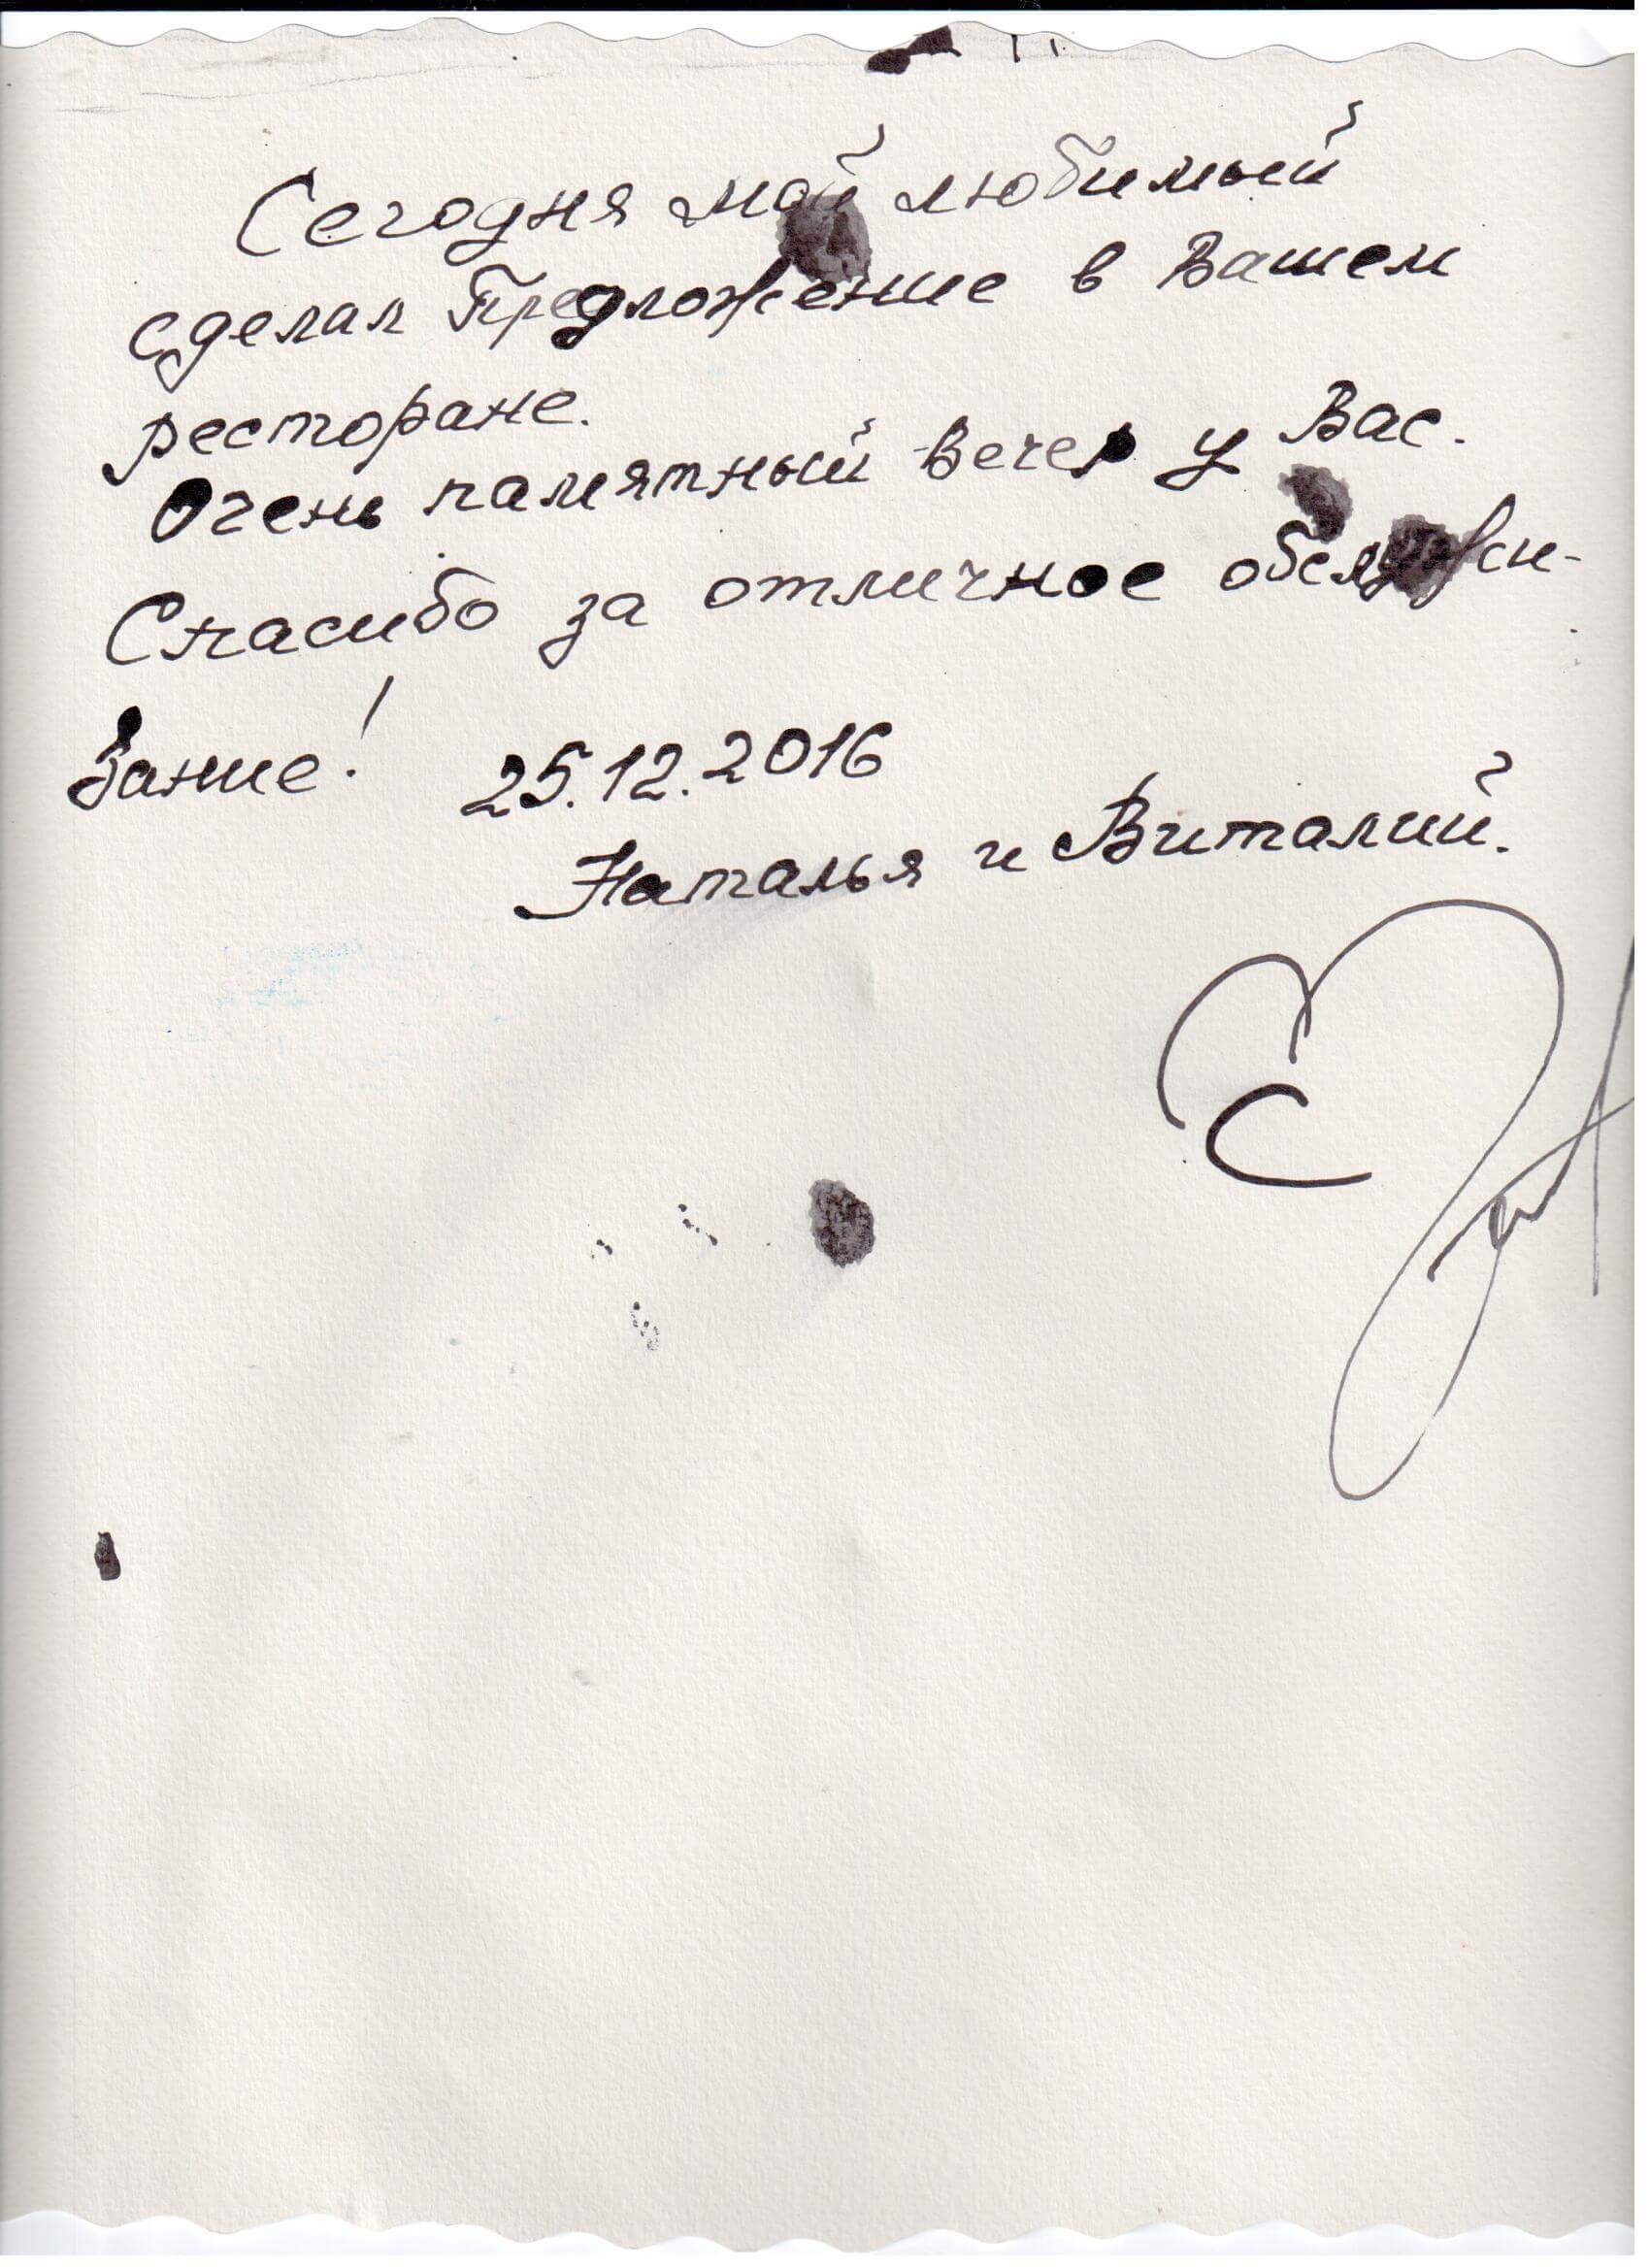 Сегодня мой любимый
сделал Предложение в Вашем
ресторане.
Очень памятный вечер у Вас.
Спасибо за отличное обслужи-
вание! 25.12.2016
Наталья и Виталий.